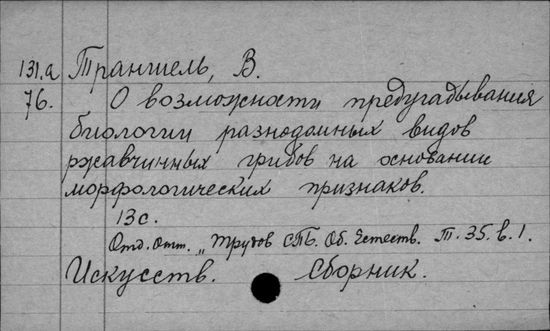 131.а Траншель, В.
76. О возможности предугадывания
биологии разнодомных видов
ржавчинных грибов на основании
морфологических признаков.
13 с.
Отд. Отт. „Трудов СПБ. Об. Естеств. Т. 35. в. 1.
Искусств. Сборник.